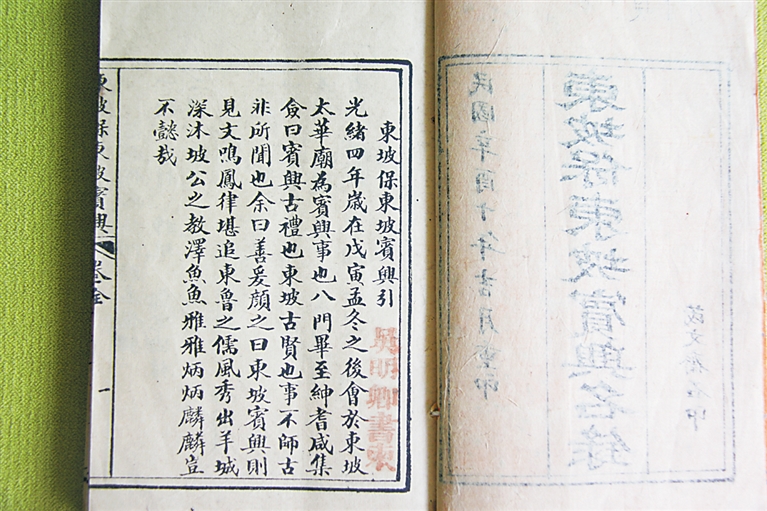 東坡保東坡賓興名錄
民國辛酉十年吉月重印
東坡保東坡賓興引
光緒四年歲在戊寅孟冬之後會於東坡
太華廟為賓興事也八門畢至紳耆咸集
僉曰賓興古禮也東坡古賢也事不師古
非所聞也余曰善爰顏之曰東坡賓興則
見文鳴鳳律堪追東魯之儒風秀出羊城
深沐坡公之教澤魚魚雅雅炳炳麟麟豈
不懿哉
明卿書
東坡保東坡賓興 卷全 一